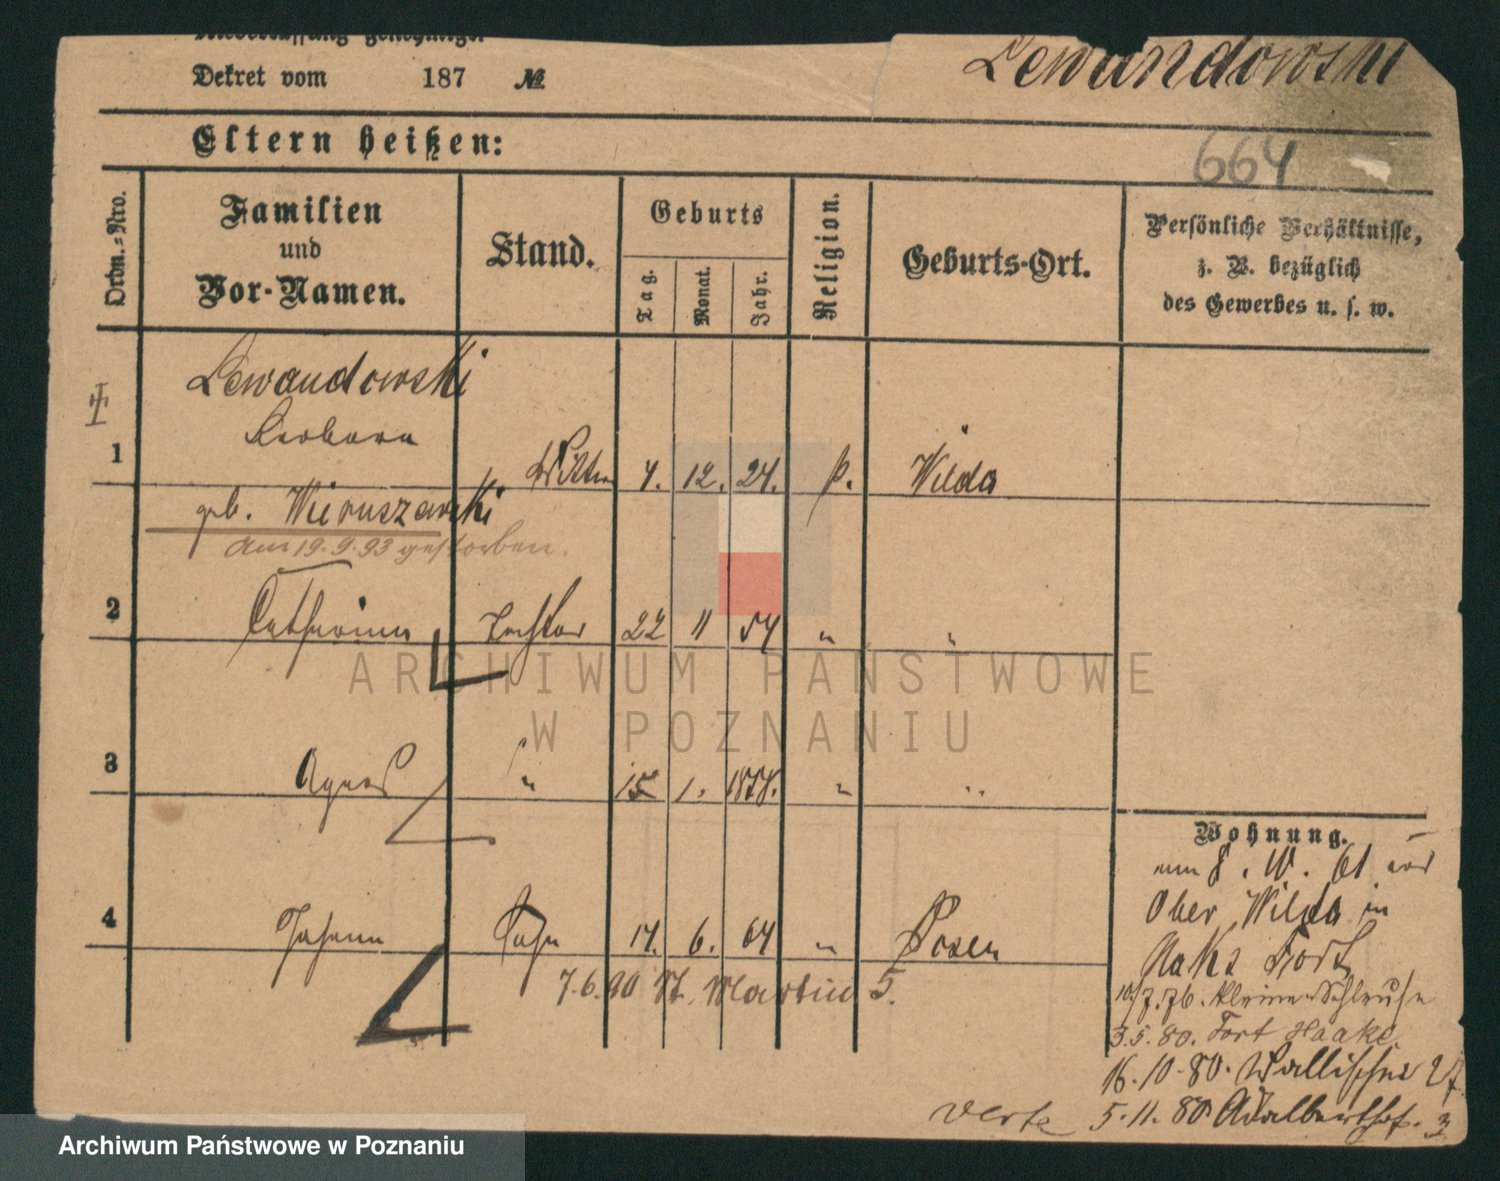 Niederlassung genehmigt.
Dekret vom 187 №
Lewandowski
Eltern heißen:
664
Ordn.=Nro.
Familien
und
Vor-Namen.
Stand.
Geburts
Tag.
Monat.
Jahr.
Religion.
Geburts-Ort.
Persönliche Verhältnisse,
z. B. bezüglich
des Gewerbes u. s. w.
Lewandowski
Barbara
1 Wittwe 4. 12. 24. k. Wilda
geb. Wieruszewski
am 19.9.93 gestorben.
2 Catharina Tochter 22 11 54 " "
3 Agnes " 15 1. 1858. " "
4 Johann Sohn 17. 6. 64 " Posen
7.6.90 St. Martin 5.
Wohnung.
61 von
Ober Wilda in
Fort
10/7.76. kleine Schleuse
3.5.80. Fort Haake
16.10.80. Wallischei 27
5.11.80 Adalberthof. 3
verte
ARCHIWUM PAŃSTWOWE
W POZNANIU
Archiwum Państwowe w Poznaniu